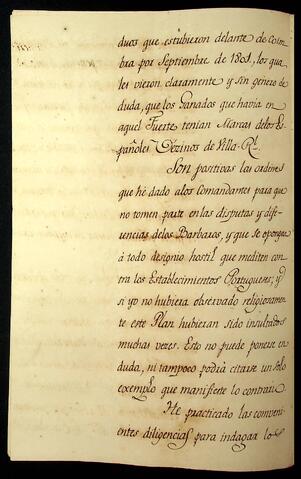 duos que estubieron delante de Coim
bra por Septiembre de 1801, los qua
les vieron claramente y sin genero de
duda, que los Ganados que havia en
aquel Fuerte tenian Marcas delos Es
pañoles Vezinos de Villa-R.
Son positivas las ordenes
que hé dado alos Comandantes para que
no tomen parte en las disputas y dife
rencias delos Barbaros, y que se opongan
á todo designio hostil que mediten con
tra los Establecimientos Portugueses; y
si yo no hubiera observado religiosamen
te este Plan hubieran sido insultados
muchas veces. Esto no puede ponerse en
duda, ni tampoco podrá citarse un solo
exemplo que manifieste lo contrario
He practicado las conveni
entes diligencias para indagar lo